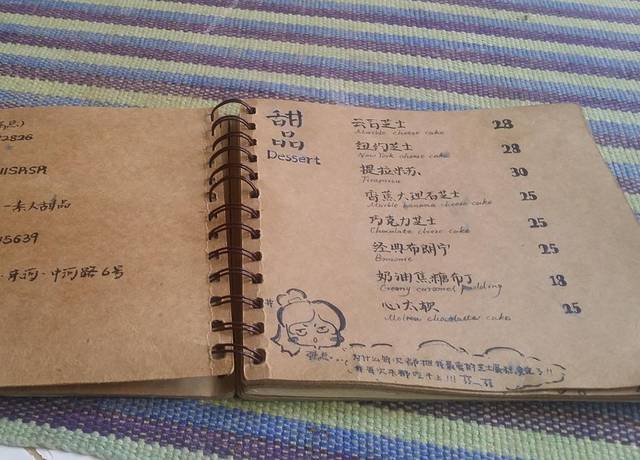 2826
一亲天甜品
5639
中河路6号
甜
品
Dessert
云石芝士 28
Marble cheese cake
纽约芝士 28
New York cheese cake
提拉米苏 30
Tiramisu
香蕉大理石芝士 25
Marble banana cheese cake
巧克力芝士 25
Chocolate cheese cake
经典布朗宁 25
Brownie
奶油焦糖布丁 18
Creamy caramel pudding
心太软 25
Molten chocolate cake
为什么每次都把我最爱的芝士蛋糕卖完了!!
我每次来都吃不上!!!